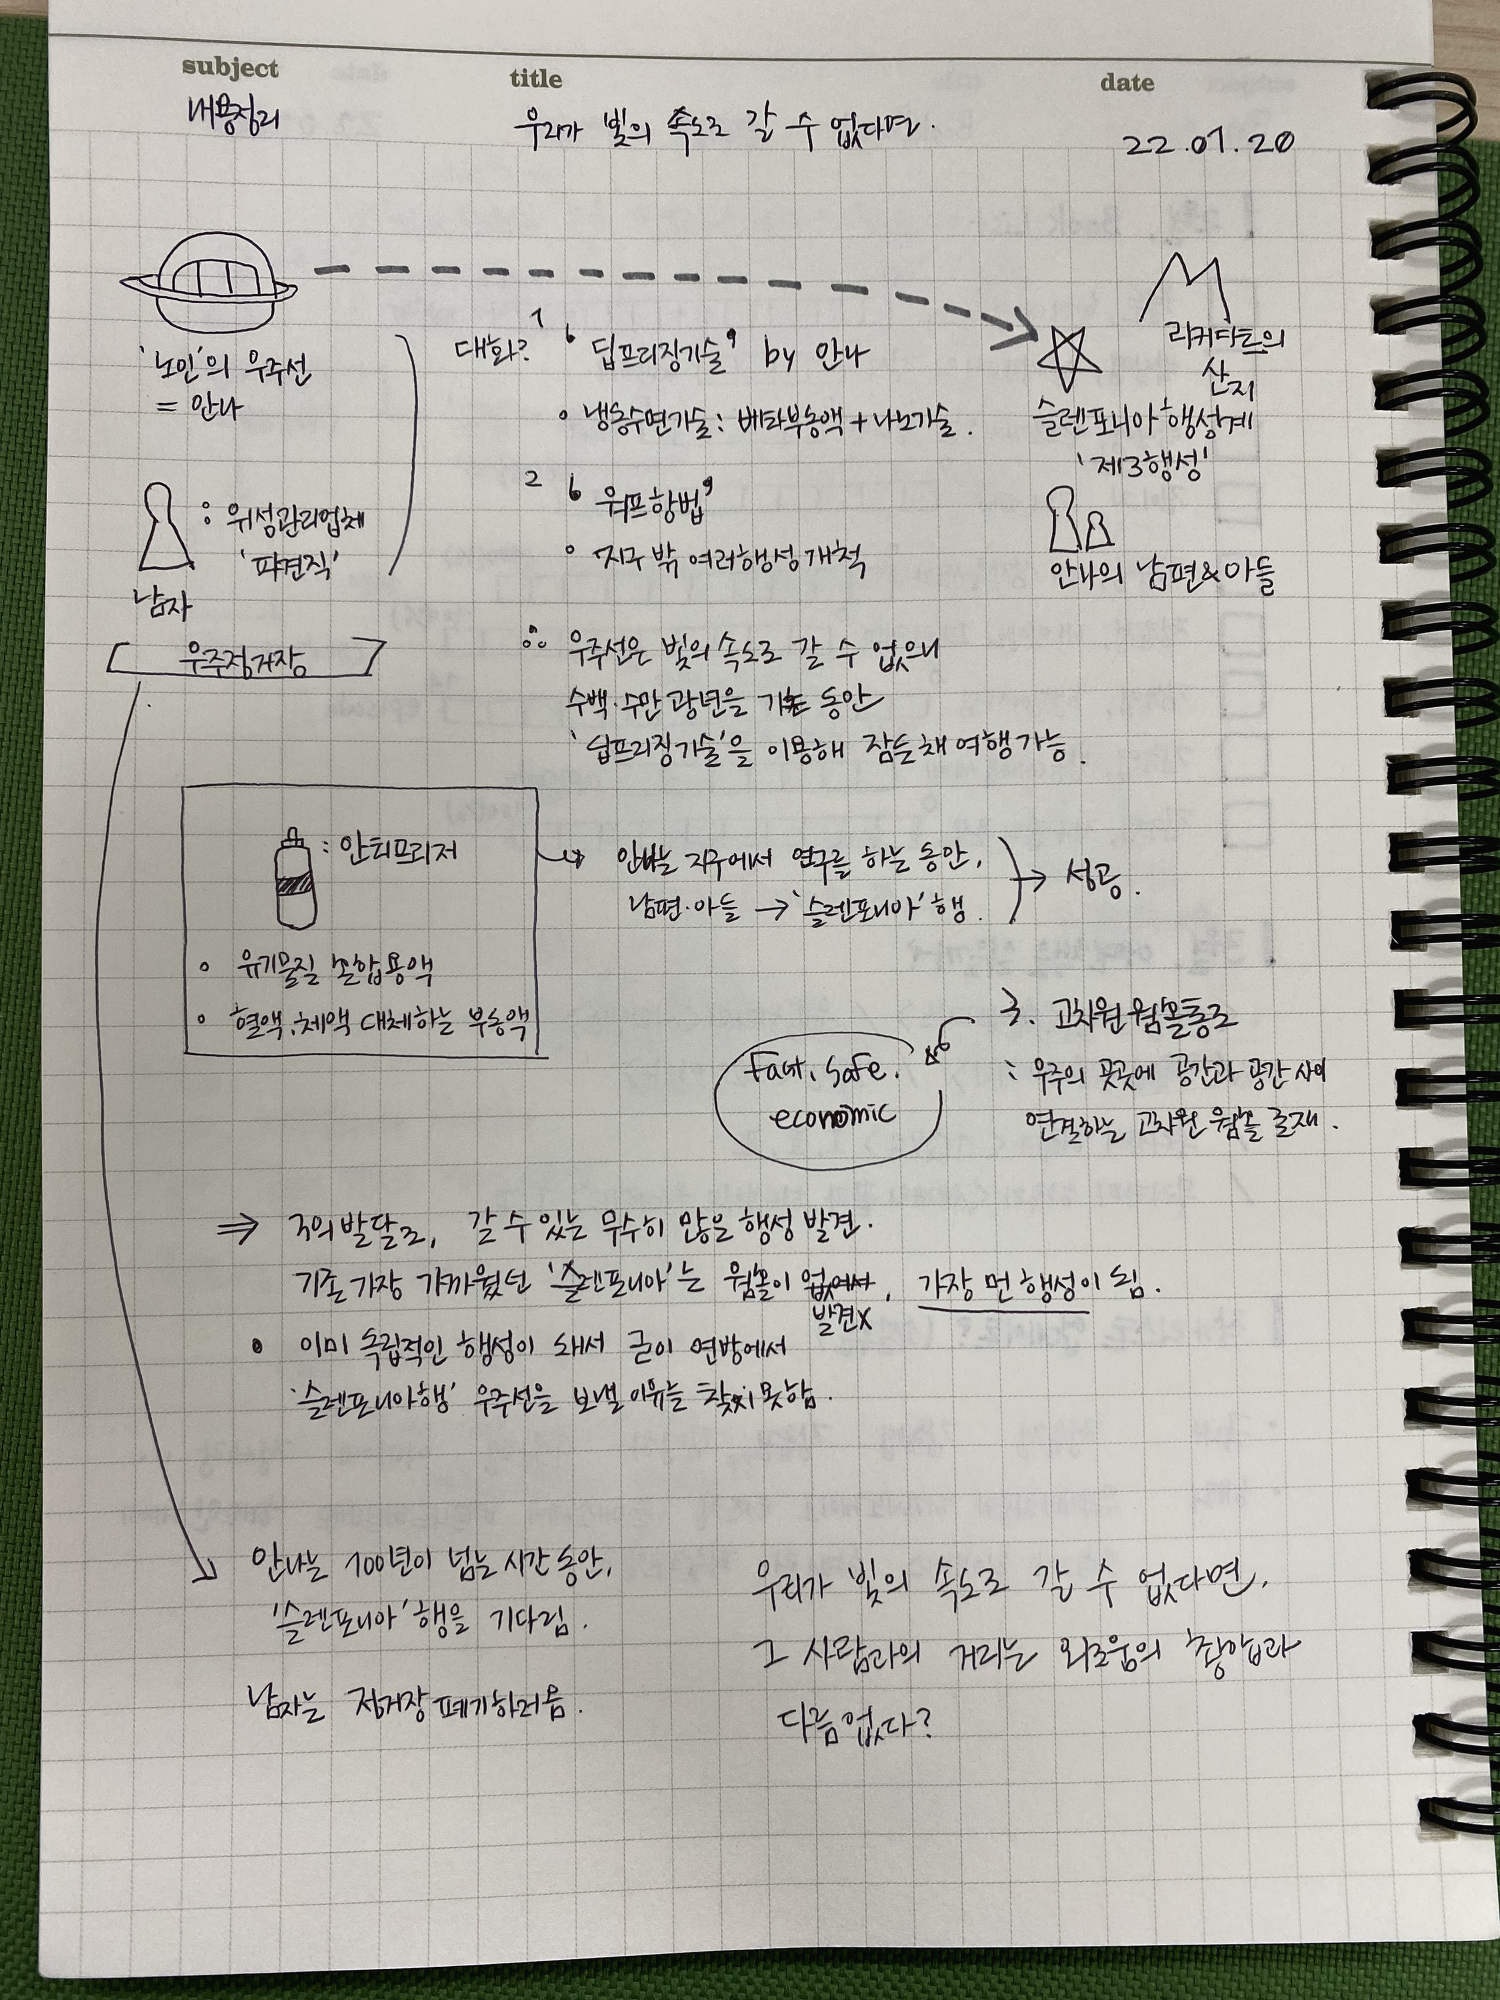 subject
title
date
내용정리
우리가 빛의 속도로 갈 수 없다면.
22.01.20
'노인'의 우주선
= 안나
: 위성관리업체
'파견직'
남자
우주정거장
대화?
1 '딥프리징기술' by 안나
• 냉동수면기술: 베타부동액 + 나노기술.
2 '워프항법'
• 지구 밖 여러행성개척
∴ 우주선은 빛의 속도로 갈 수 없으니
수백·수만광년을 가는 동안
'딥프리징기술'을 이용해 잠든채 여행가능.
리커다트의
산지
슬렌포니아 행성계
'제3행성'
안나의 남편&아들
: 안티프리저
• 유기물질 혼합용액
• 혈액, 체액 대체하는 부동액
안나는 지구에서 연구를 하는 동안,
남편·아들 → '슬렌포니아' 행.
→ 성공.
3. 고차원 웜홀통로
: 우주의 곳곳에 공간과 공간 사이
연결하는 고차원 웜홀 존재.
Fast, Safe.
economic
⇒ 3의 발달로, 갈 수 있는 무수히 많은 행성 발견.
기존 가장 가까웠던 '슬렌포니아'는 웜홀이 없어서, 가장 먼 행성이 됨.
발견X
• 이미 독립적인 행성이 돼서 굳이 연방에서
'슬렌포니아행' 우주선을 보낼 이유를 찾지 못함.
안나는 100년이 넘는 시간 동안,
'슬렌포니아' 행을 기다림.
남자는 정거장 폐기하러옴.
우리가 빛의 속도로 갈 수 없다면,
그 사람과의 거리는 외로움의 총합과
다름없다?